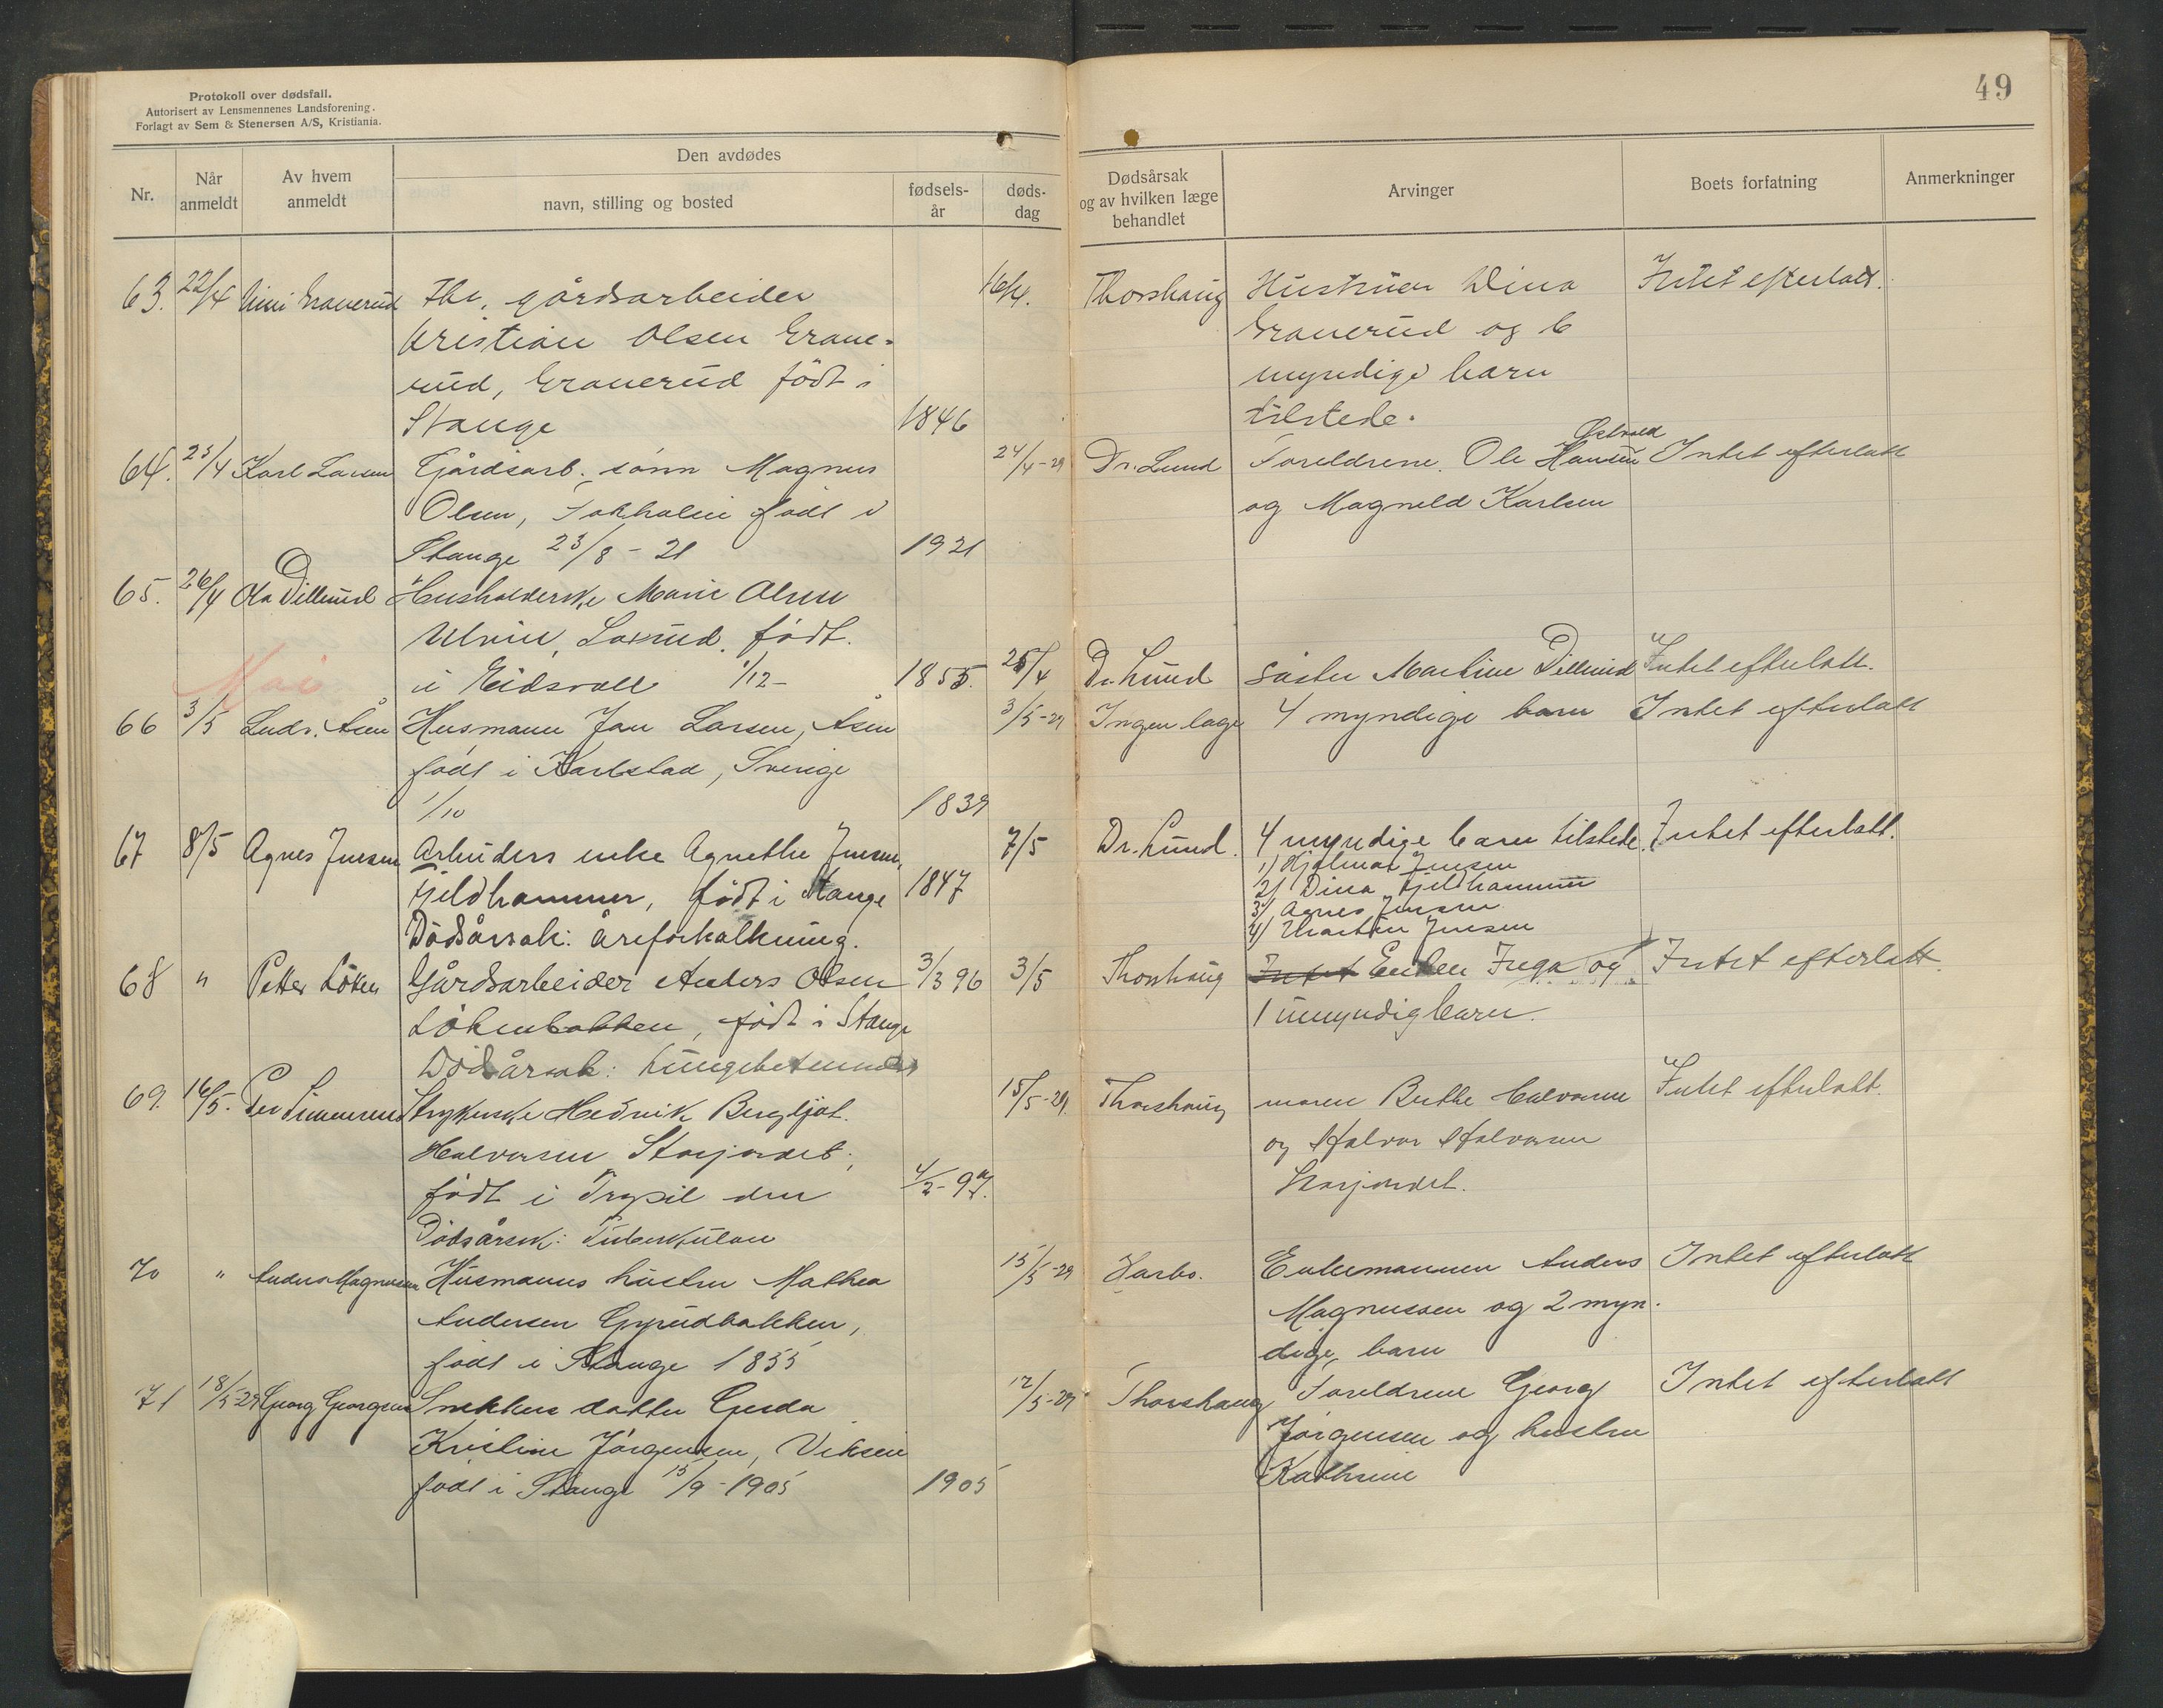 Protokoll over dødsfall.
Autorisert av Lensmennenes Landsforening.
Forlagt av Sem & Stenersen A/S, Kristiania.
49
Nr.
Når anmeldt
Av hvem anmeldt
Den avdødes
navn, stilling og bosted
fødsels-år
døds-dag
Dødsårsak og av hvilken læge behandlet
Arvinger
Boets forfatning
Anmerkninger
63. 22/4 Granerud Fhv. gårdsarbeider 16/4. Thorshaug Hustruen Dina Intet efterlatt.
Kristian Olsen Grane- Granerud og 6
rud, Granerud født i myndige barn
Stange 1846 tilstede.
Østvold
64. 25/4 Karl Larsen Gårdsarb. sønn Magnus 24/4-29 Dr. Lund Foreldrene. Ole Hansen Intet efterlatt
Olsen, født i og Magnild Karlsen
Stange 23/8 - 21 1921
65. 26/4 Ola Dillerud Husholderske Marie Olsen
Ulvin, født.
Mai
i Eidsvoll 1/12- 1855. 25/4 Dr. Lund søster Martine Dillerud Intet efterlatt.
66 3/5 Ludv. Åsen Husmann Jan Larsen, Åsen 3/5-29 Ingen læge 4 myndige barn Intet efterlatt
født i Karlstad, Sverige
1/10 1839
67 8/5 Agnes Jensen Arbeiders enke Agnethe Jensen, 7/5 Dr. Lund. 4 myndige barn tilstede. Intet efterlatt.
Fjeldhammer, født i Stange 1847
1) Hjalmar Jensen
2) Dina Fjeldhammer
3) Agnes Jensen
Dödsårsak: åreforkalkning. 4) Martin Jensen
68 " Petter Löken Gårdsarbeider Anders Olsen 3/3 96 3/5 Thorshaug Intet Enken Inga og Intet efterlatt.
Lökenbakken, født i Stange 1 umyndig barn.
Dødsårsak: Lungebetennelse
69. 16/5. Per Strykerske Hedvik Bergljot. 15/5-29. Thorshaug moren Berthe Halvorsen Intet efterlatt.
Halvorsen Storjordet, og Halvor Halvorsen
født i Trysil den 4/2-97. Storjordet.
Dødsårsak: Tuberkulose
70 " Anders Magnussen Husmanns hustru Mathea 15/5-29 Harbo. Enkemannen Anders Intet efterlatt
Andersen Gyrudbakken, Magnussen og 2 myn-
født i Stange 1855 dige barn
71 18/5-29 Georg Georgsen Snekkers datter Gerda 17/5-29 Thorshaug Foreldrene Georg Intet efterlatt
Kristine Jörgensen, Viksen Jörgensen og hustru
født i Stange 15/9-1905 1905 Kathrine